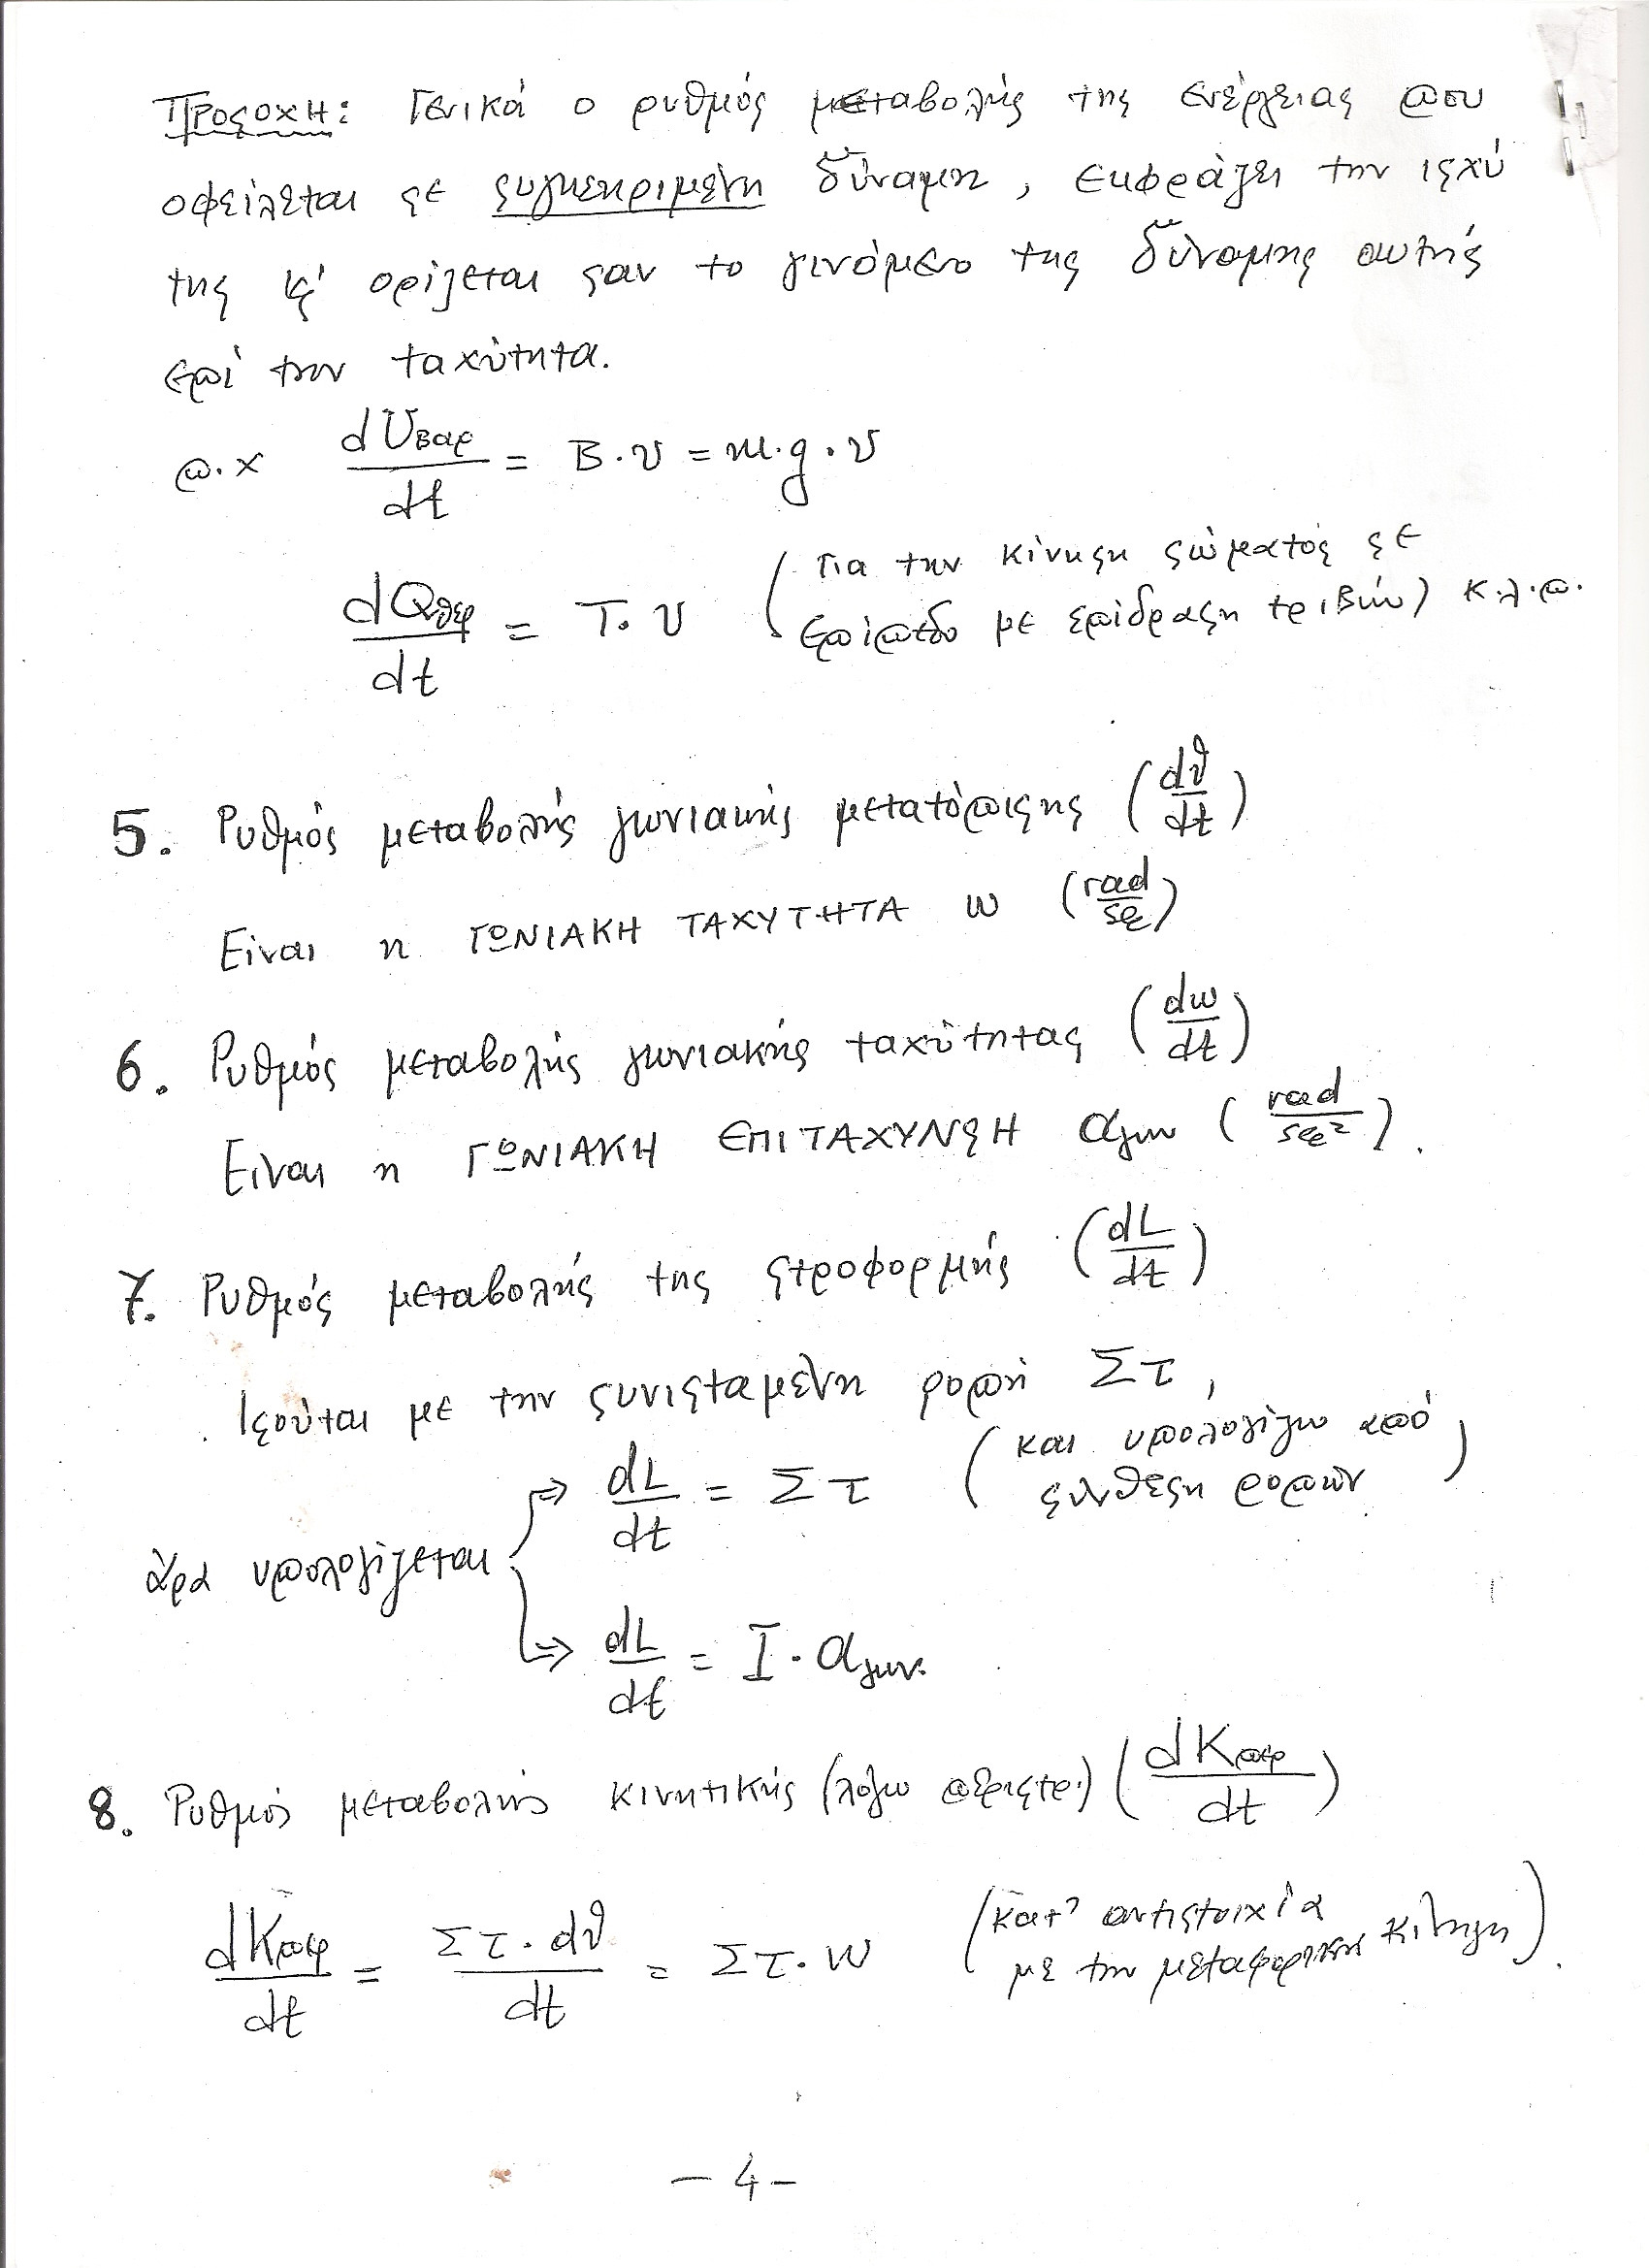 Προσοχη: Γενικά ο ρυθμός μεταβολής της ενέργειας που
οφείλεται σε συγκεκριμένη δύναμη, εκφράζει την ισχύ
της κ' ορίζεται σαν το γινόμενο της δύναμης αυτής
επί την ταχύτητα.
π.χ dUβαρ/dt = B·υ = m·g·υ
dQθερ/dt = T·υ (Για την κίνηση σώματος σε
επίπεδο με επίδραση τριβών) κ.λ.π.
5. Ρυθμός μεταβολής γωνιακής μετατόπισης (dθ/dt)
Είναι η ΓΩΝΙΑΚΗ ΤΑΧΥΤΗΤΑ ω (rad/sec)
6. Ρυθμός μεταβολής γωνιακής ταχύτητας (dω/dt)
Είναι η ΓΩΝΙΑΚΗ ΕΠΙΤΑΧΥΝΣΗ αγων (rad/sec²).
7. Ρυθμός μεταβολής της στροφορμής (dL/dt)
Ισούται με την συνισταμένη ροπή Στ,
(και υπολογίζω από
σύνθεση ροπών)
⇒ dL/dt = Στ
άρα υπολογίζεται
⇒ dL/dt = I·αγων.
8. Ρυθμός μεταβολής κινητικής (λόγω περιστρ.) (dKπερ/dt)
dKπερ/dt = Στ·dθ/dt = Στ·ω (κατ' αντιστοιχία
με την μεταφορική κίνηση).
- 4 -